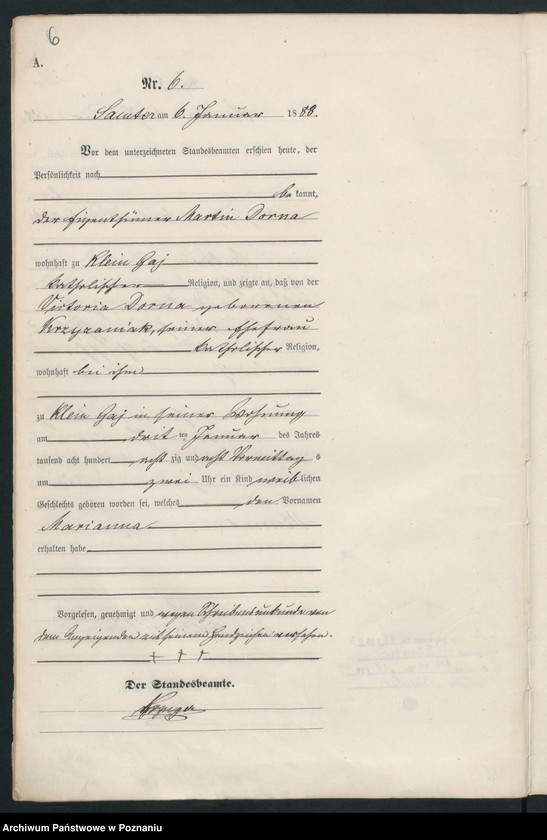 6
A.
Nr. 6.
Samter am 6. Januar 1888.
Vor dem unterzeichneten Standesbeamten erschien heute, der
Persönlichkeit nach
be kannt,
der Eigenthümer Martin Dorna
wohnhaft zu Klein Gaj
katholischer Religion, und zeigte an, daß von der
Victoria Dorna geborenen
Krzyzaniak, seiner Ehefrau
katholischer Religion,
wohnhaft bei ihm
zu Klein Gaj in seiner Wohnung
am dritten Januar des Jahres
tausend acht hundert acht zig und acht Vormittag s
um zwei Uhr ein Kind weiblichen
Geschlechts geboren worden sei, welches den Vornamen
Marianna
erhalten habe
Vorgelesen, genehmigt und wegen Schreibensunkunde von
dem Anzeigenden mit seinem Handzeichen versehen.
+ + +
Der Standesbeamte.
Archiwum Państwowe w Poznaniu